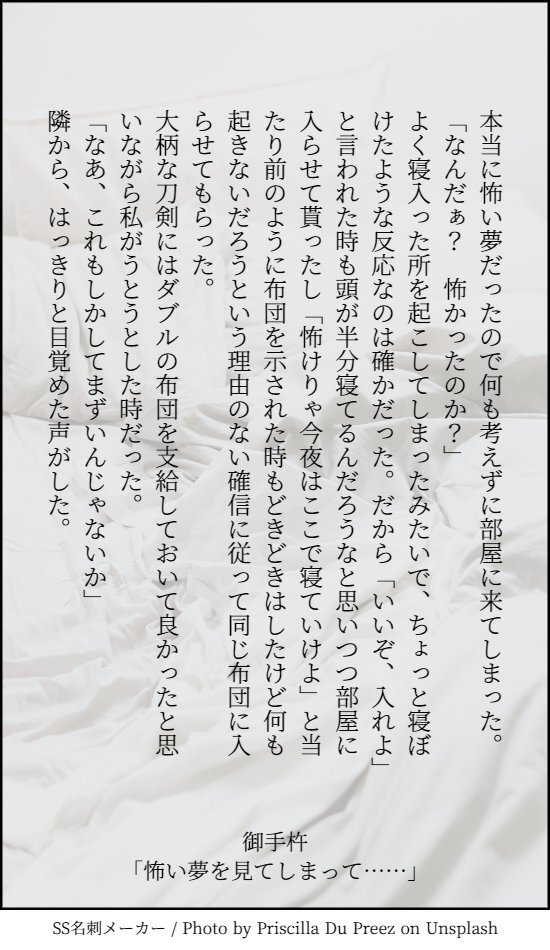 本当に怖い夢だったので何も考えずに部屋に来てしまった。
「なんだぁ？　怖かったのか？」
よく寝入った所を起こしてしまったみたいで、ちょっと寝ぼ
けたような反応なのは確かだった。だから「いいぞ、入れよ」
と言われた時も頭が半分寝てるんだろうなと思いつつ部屋に
入らせて貰ったし「怖けりゃ今夜はここで寝ていけよ」と当
たり前のように布団を示された時もどきどきはしたけど何も
起きないだろうという理由のない確信に従って同じ布団に入
らせてもらった。
大柄な刀剣にはダブルの布団を支給しておいて良かったと思
いながら私がうとうとした時だった。
「なあ、これもしかしてまずいんじゃないか」
隣から、はっきりと目覚めた声がした。
御手杵
「怖い夢を見てしまって……」
SS名刺メーカー / Photo by Priscilla Du Preez on Unsplash